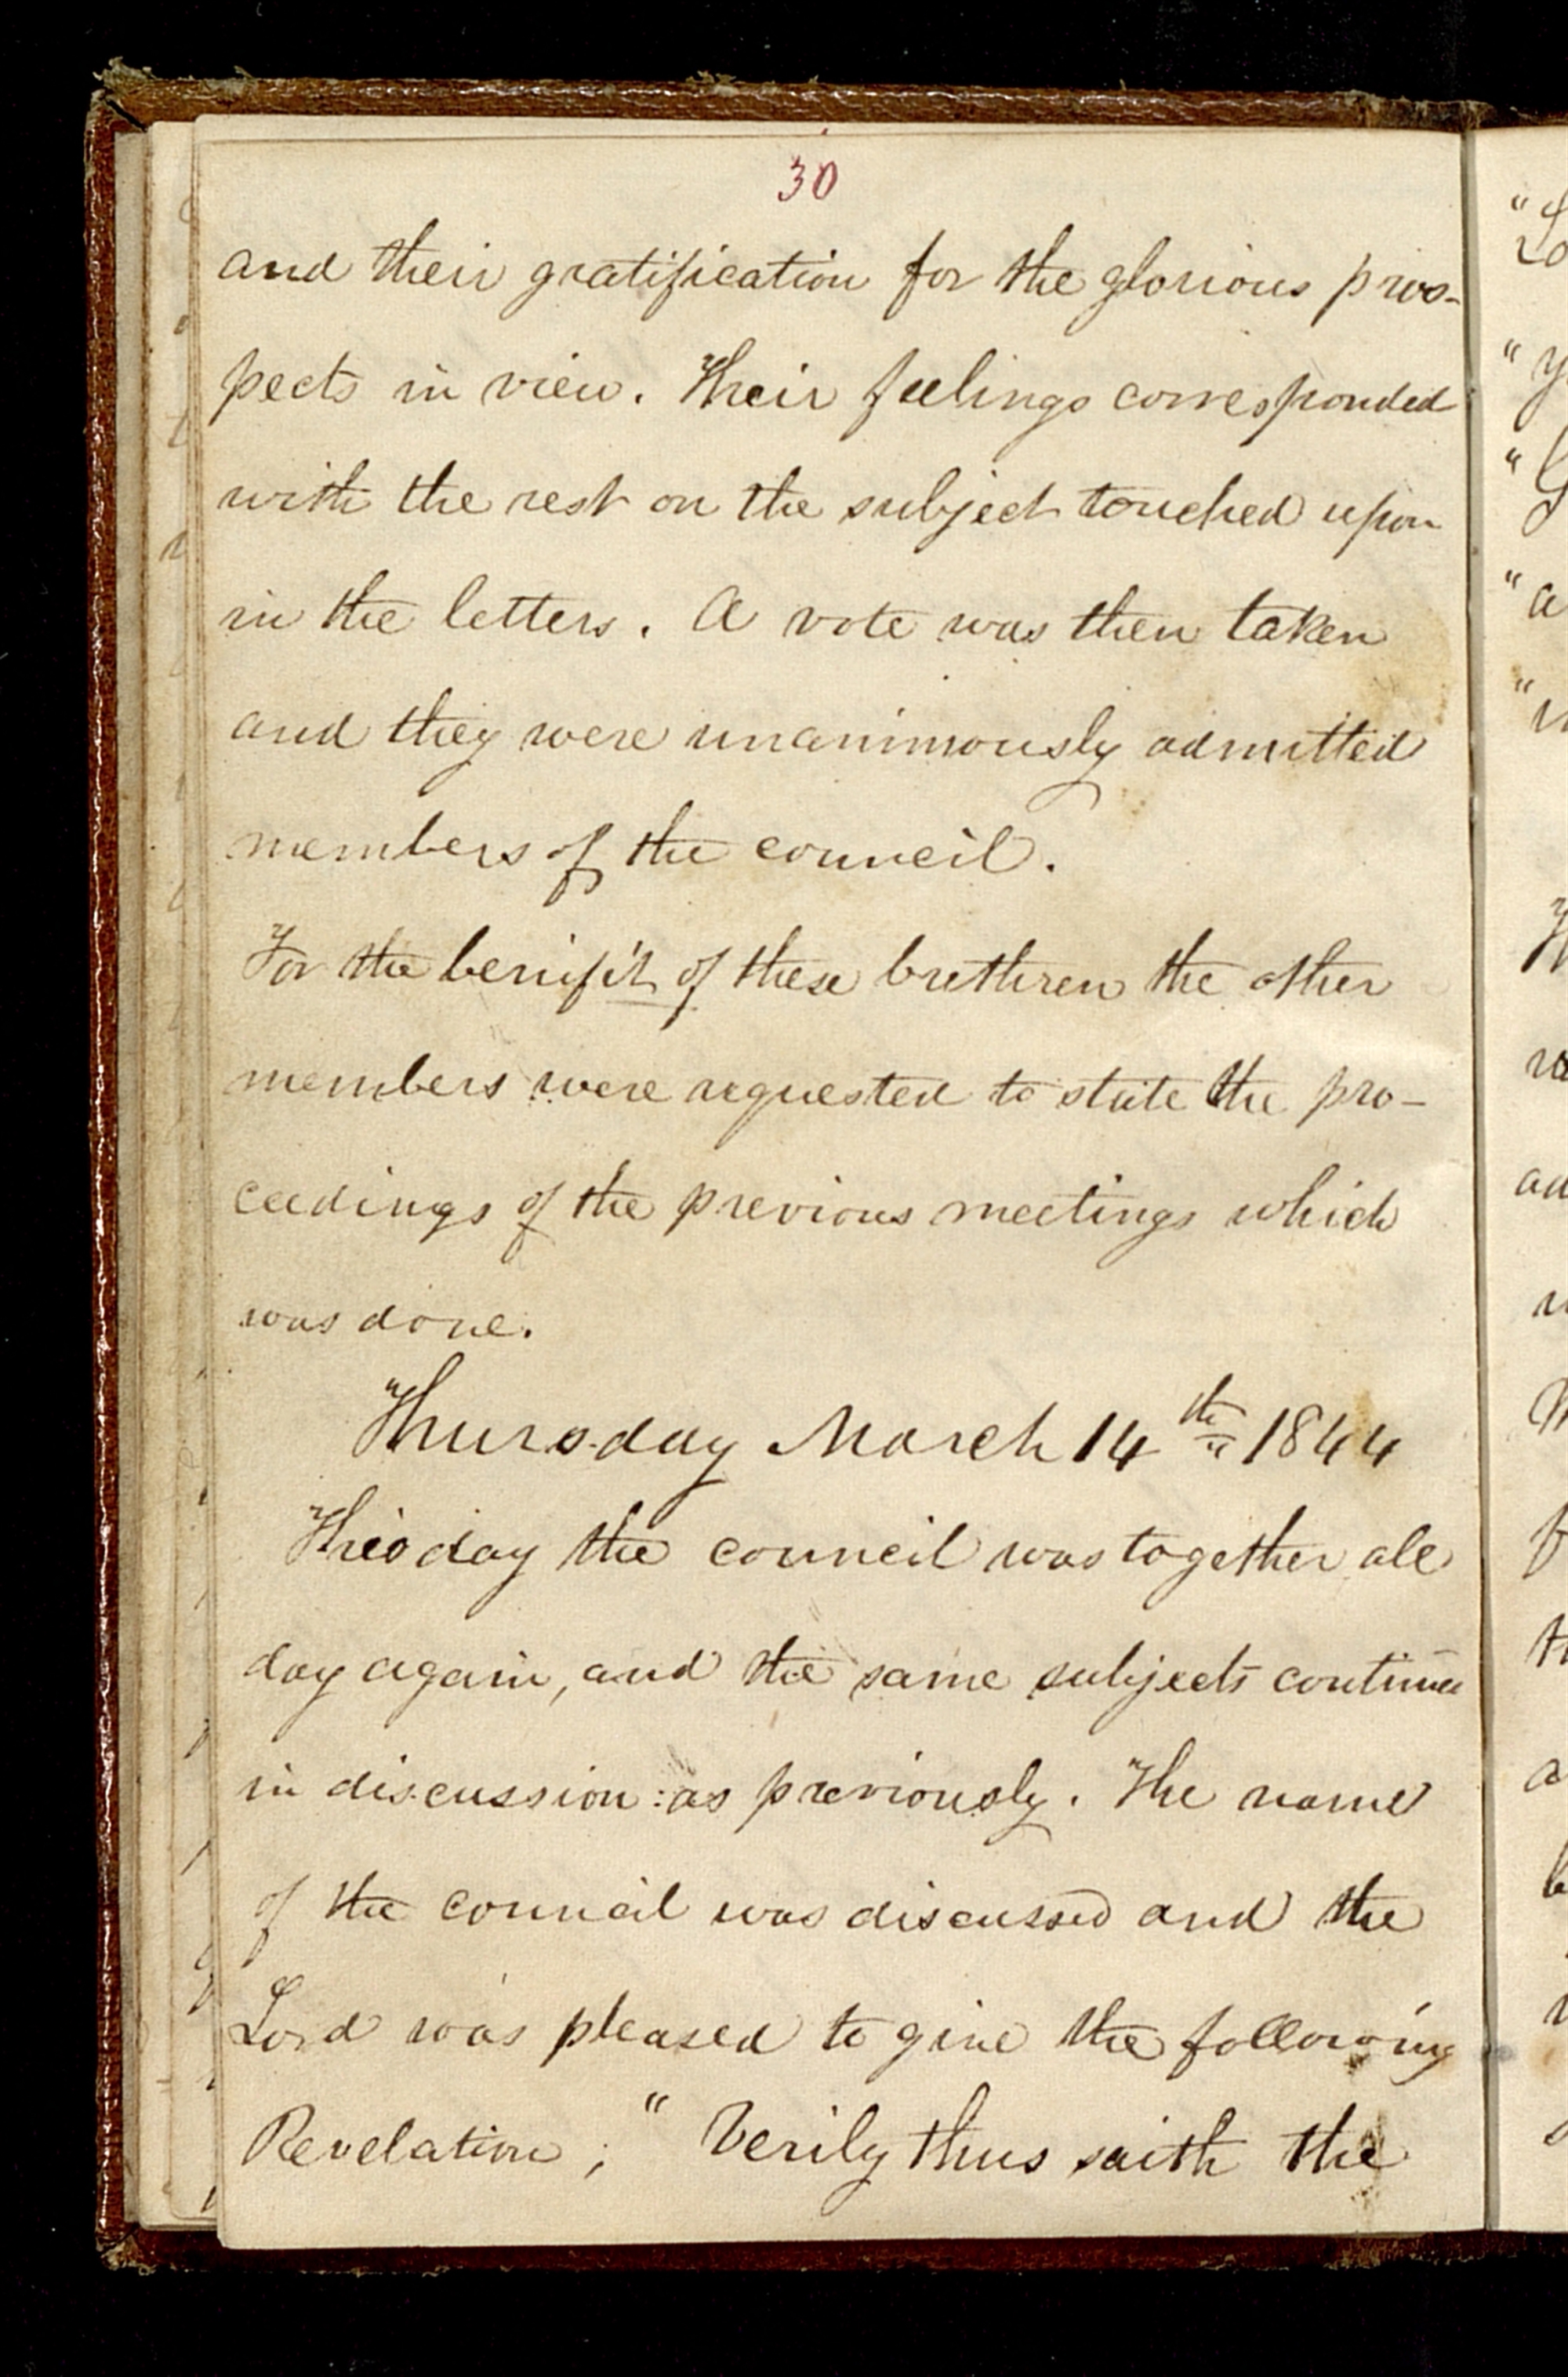 30
and their gratification for the glorious pros-
pects in view. Their feelings corresponded
with the rest on the subject touched upon
in the letters. A vote was then taken
and they were unanimously admitted
members of the council.
For the benifit of these brethren the other
members were requested to state the pro-
ceedings of the previous meetings which
was done.
Thursday March 14th 1844
This day the council was together all
day again, and the same subjects continued
in discussion as previously. The name
of the council was discussed and the
Lord was pleased to give the following
Revelation; "Verily thus saith the